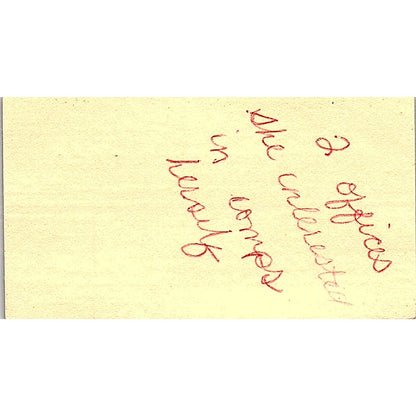 2 offices
she interested
in comps
herself